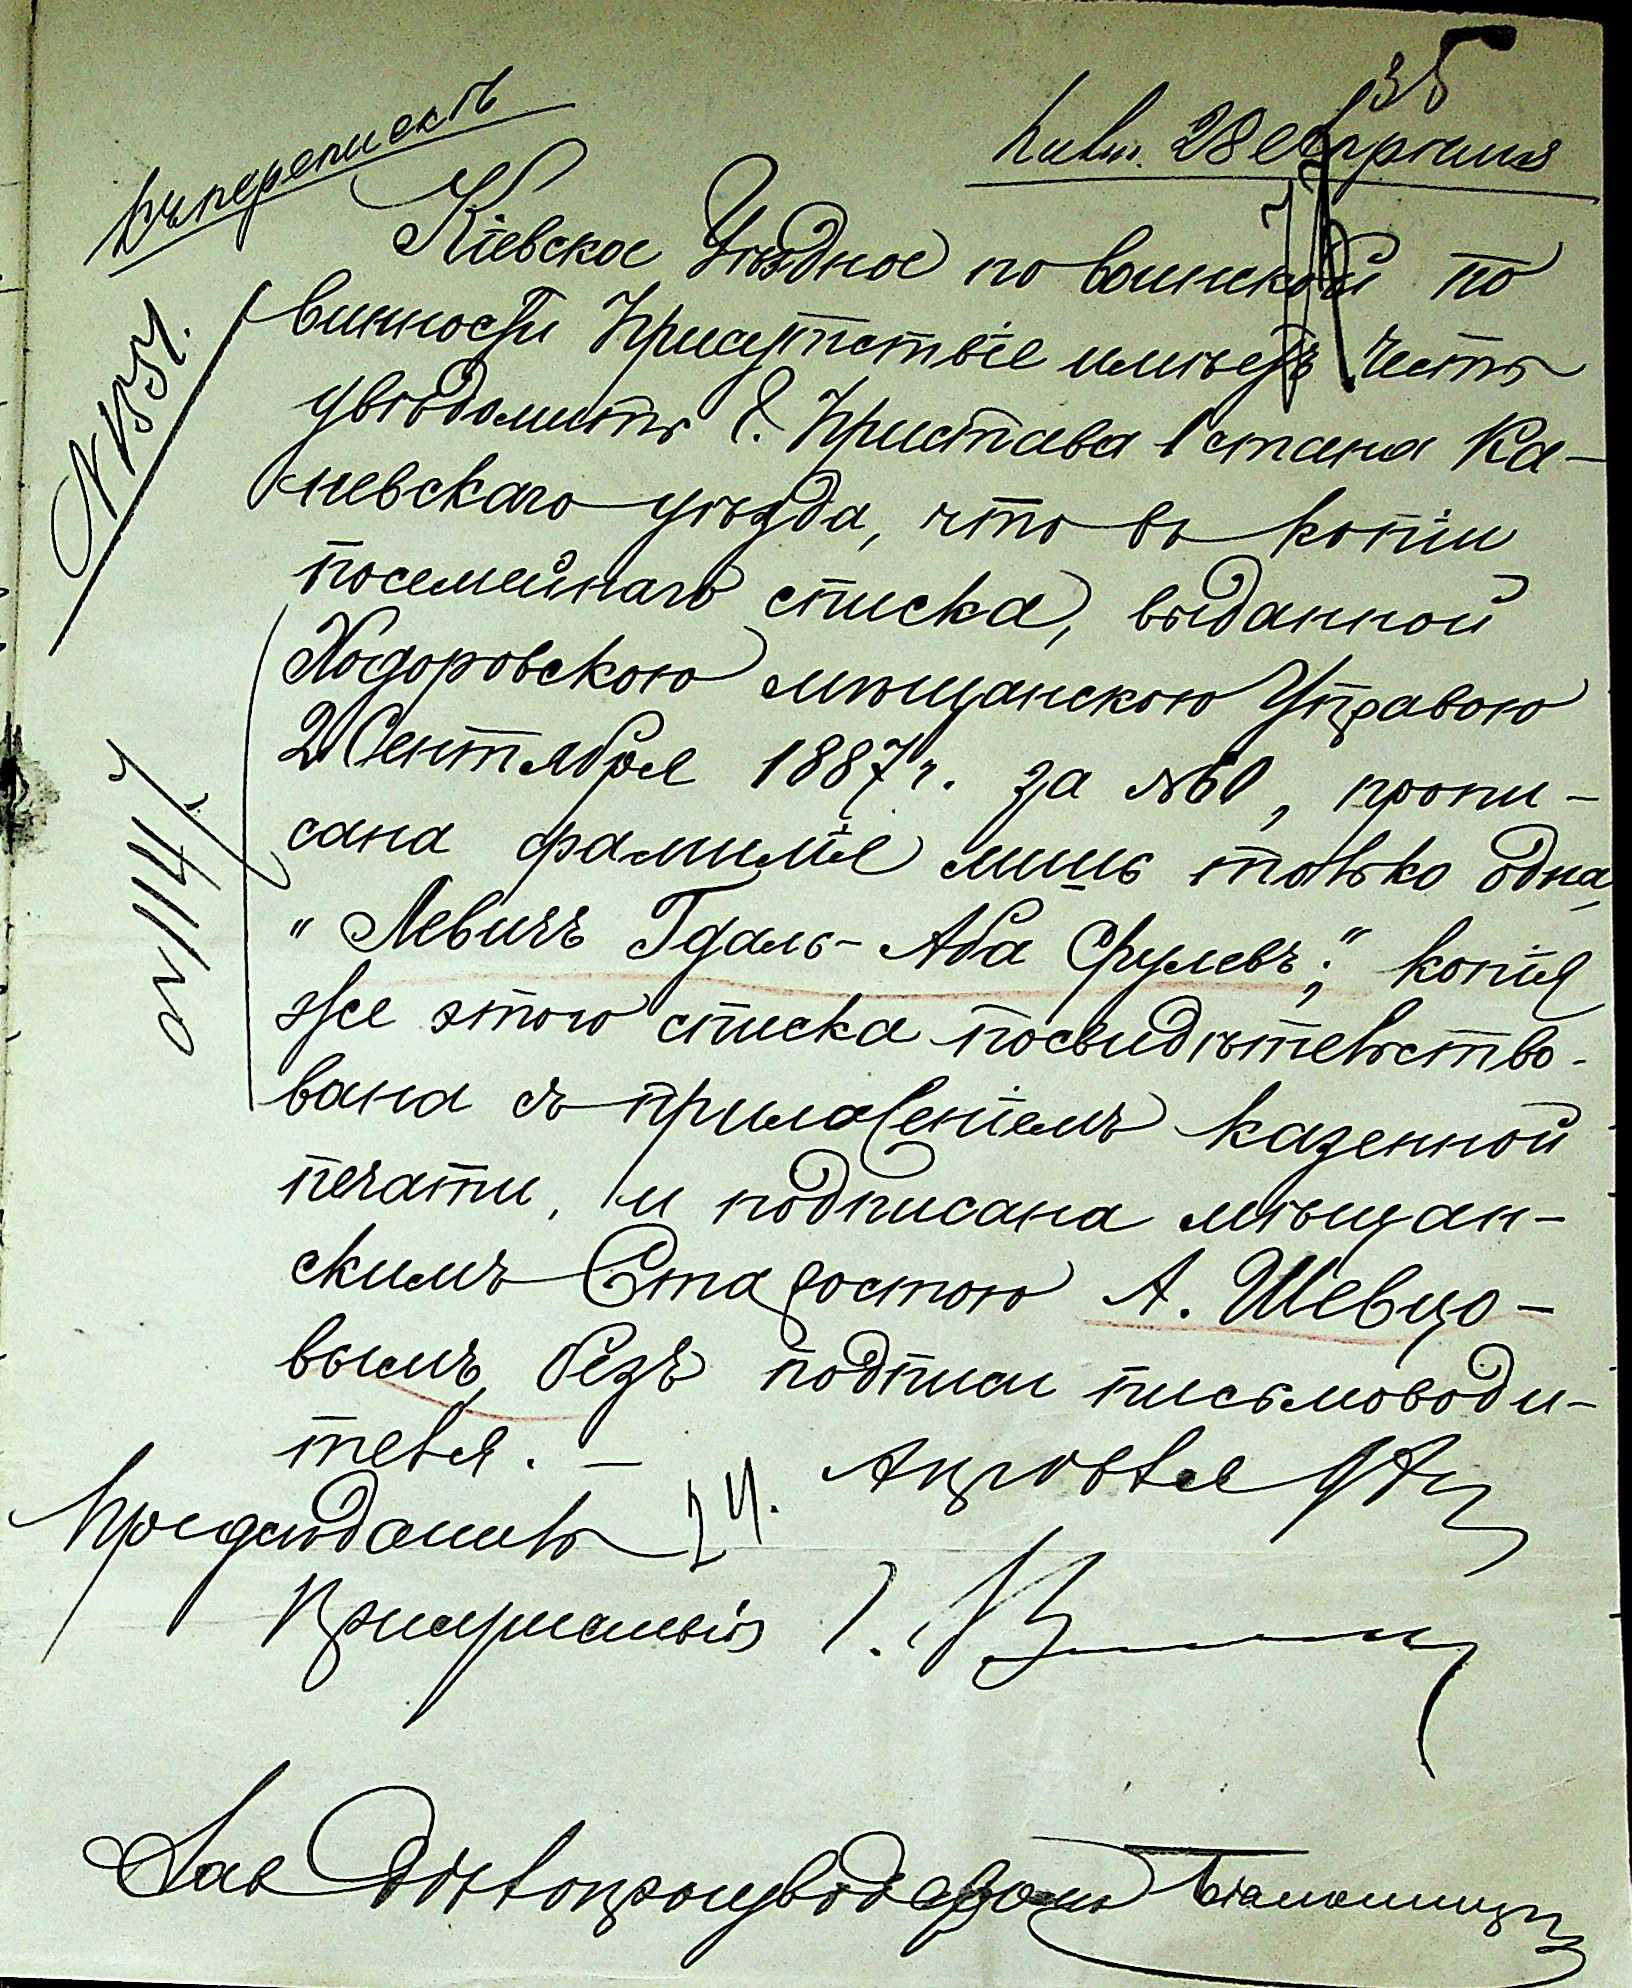 35
Къ перепискѣ
28 Февраля
Кіевское Уѣздное по воинской по
винности Присутствіе имѣетъ честь
увѣдомить Г. Пристава 1 стана Ка-
невскаго уѣзда, что въ копіи
посемейнаго списка, выданной
Ходоровскою мѣщанскою Управою
2 Сентября 1887 г. за № 60, пропи-
сана фамилія лишь только одна,
"Левичъ Гдаль-Аба Срулевъ;" копія
же этого списка посвидѣтельство-
вана съ приложеніемъ казенной
печати, и подписана мѣщан-
скимъ Старостою А. Шевцо-
вымъ, безъ подписи письмоводи-
теля. —
Предсѣдатель
Зав Дѣлопроизводствомъ